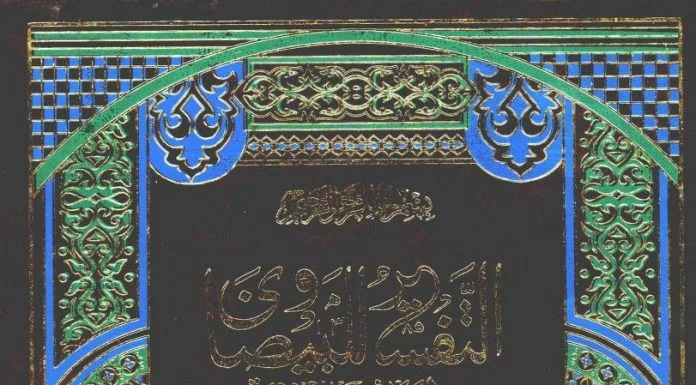 بسم الله الرحمن الرحيم
التفسير للبيضاوى